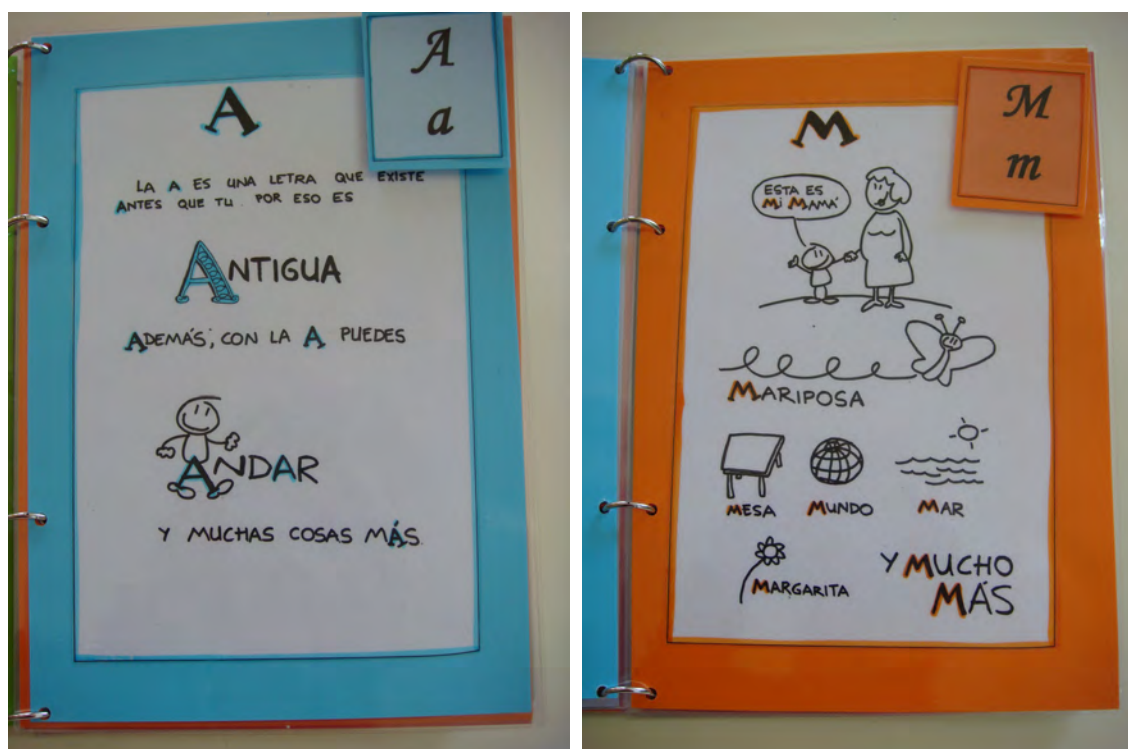 A
a
A
LA A ES UNA LETRA QUE EXISTE
ANTES QUE TU. POR ESO ES
ANTIGUA
ADEMÁS, CON LA A PUEDES
ANDAR
Y MUCHAS COSAS MÁS.
M
m
M
ESTA ES
MI MAMÁ
MARIPOSA
MESA MUNDO MAR
MARGARITA
Y MUCHO
MÁS